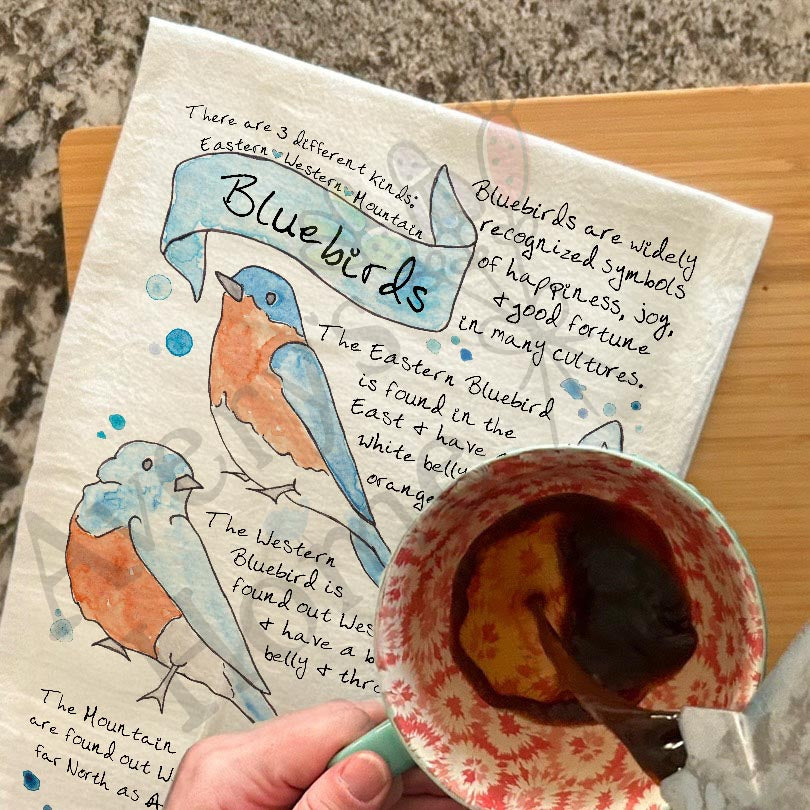 There are 3 different kinds:
Eastern Western Mountain
Bluebirds
Bluebirds are widely
recognized symbols
of happiness, joy,
& good fortune
in many cultures.
The Eastern Bluebird
is found in the
East & have
white belly
orange
The Western
Bluebird is
found out
& have a
belly &
The Mountain
are found out
far North as
Avery's